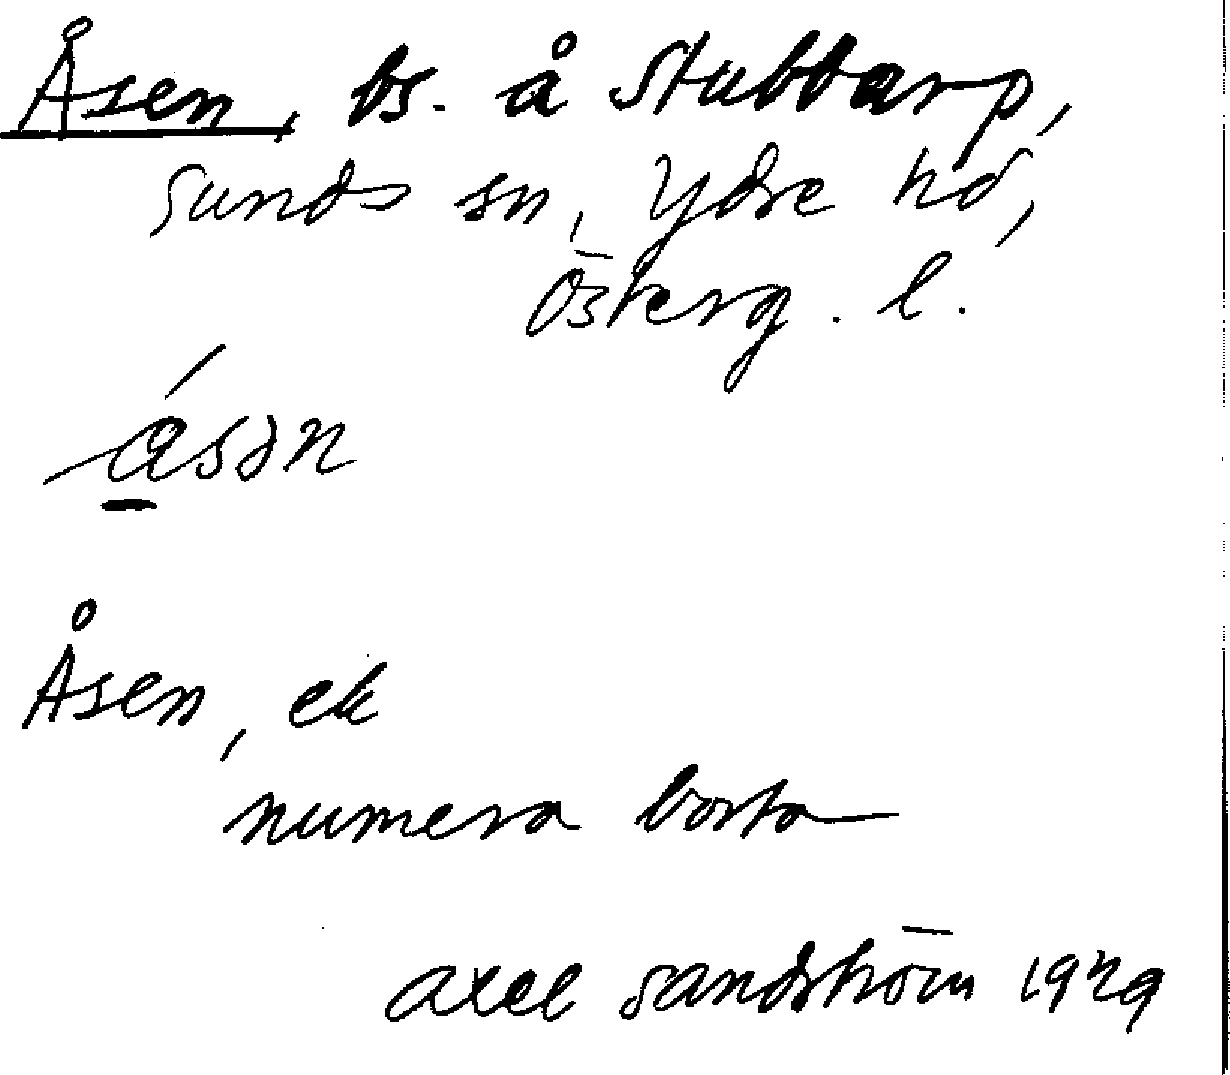 Åsen, bs. å Stubbarp,
Sunds sn, Ydre hd,
Österg. l.
ásən
Åsen, ek
numera borta
Axel Sandström 1929